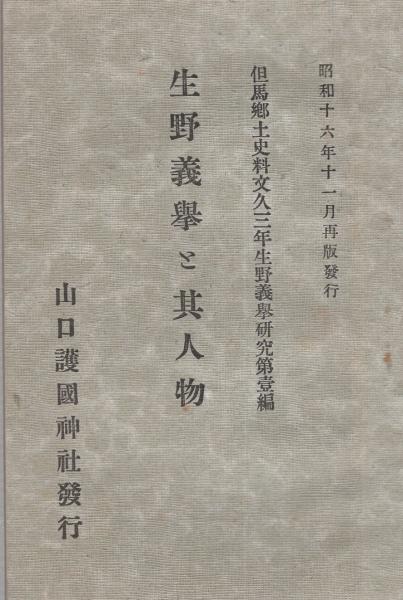 昭和十六年十一月再版發行
但馬鄕土史料文久三年生野義擧硏究第壹編
生野義擧と其人物
山口護國神社發行